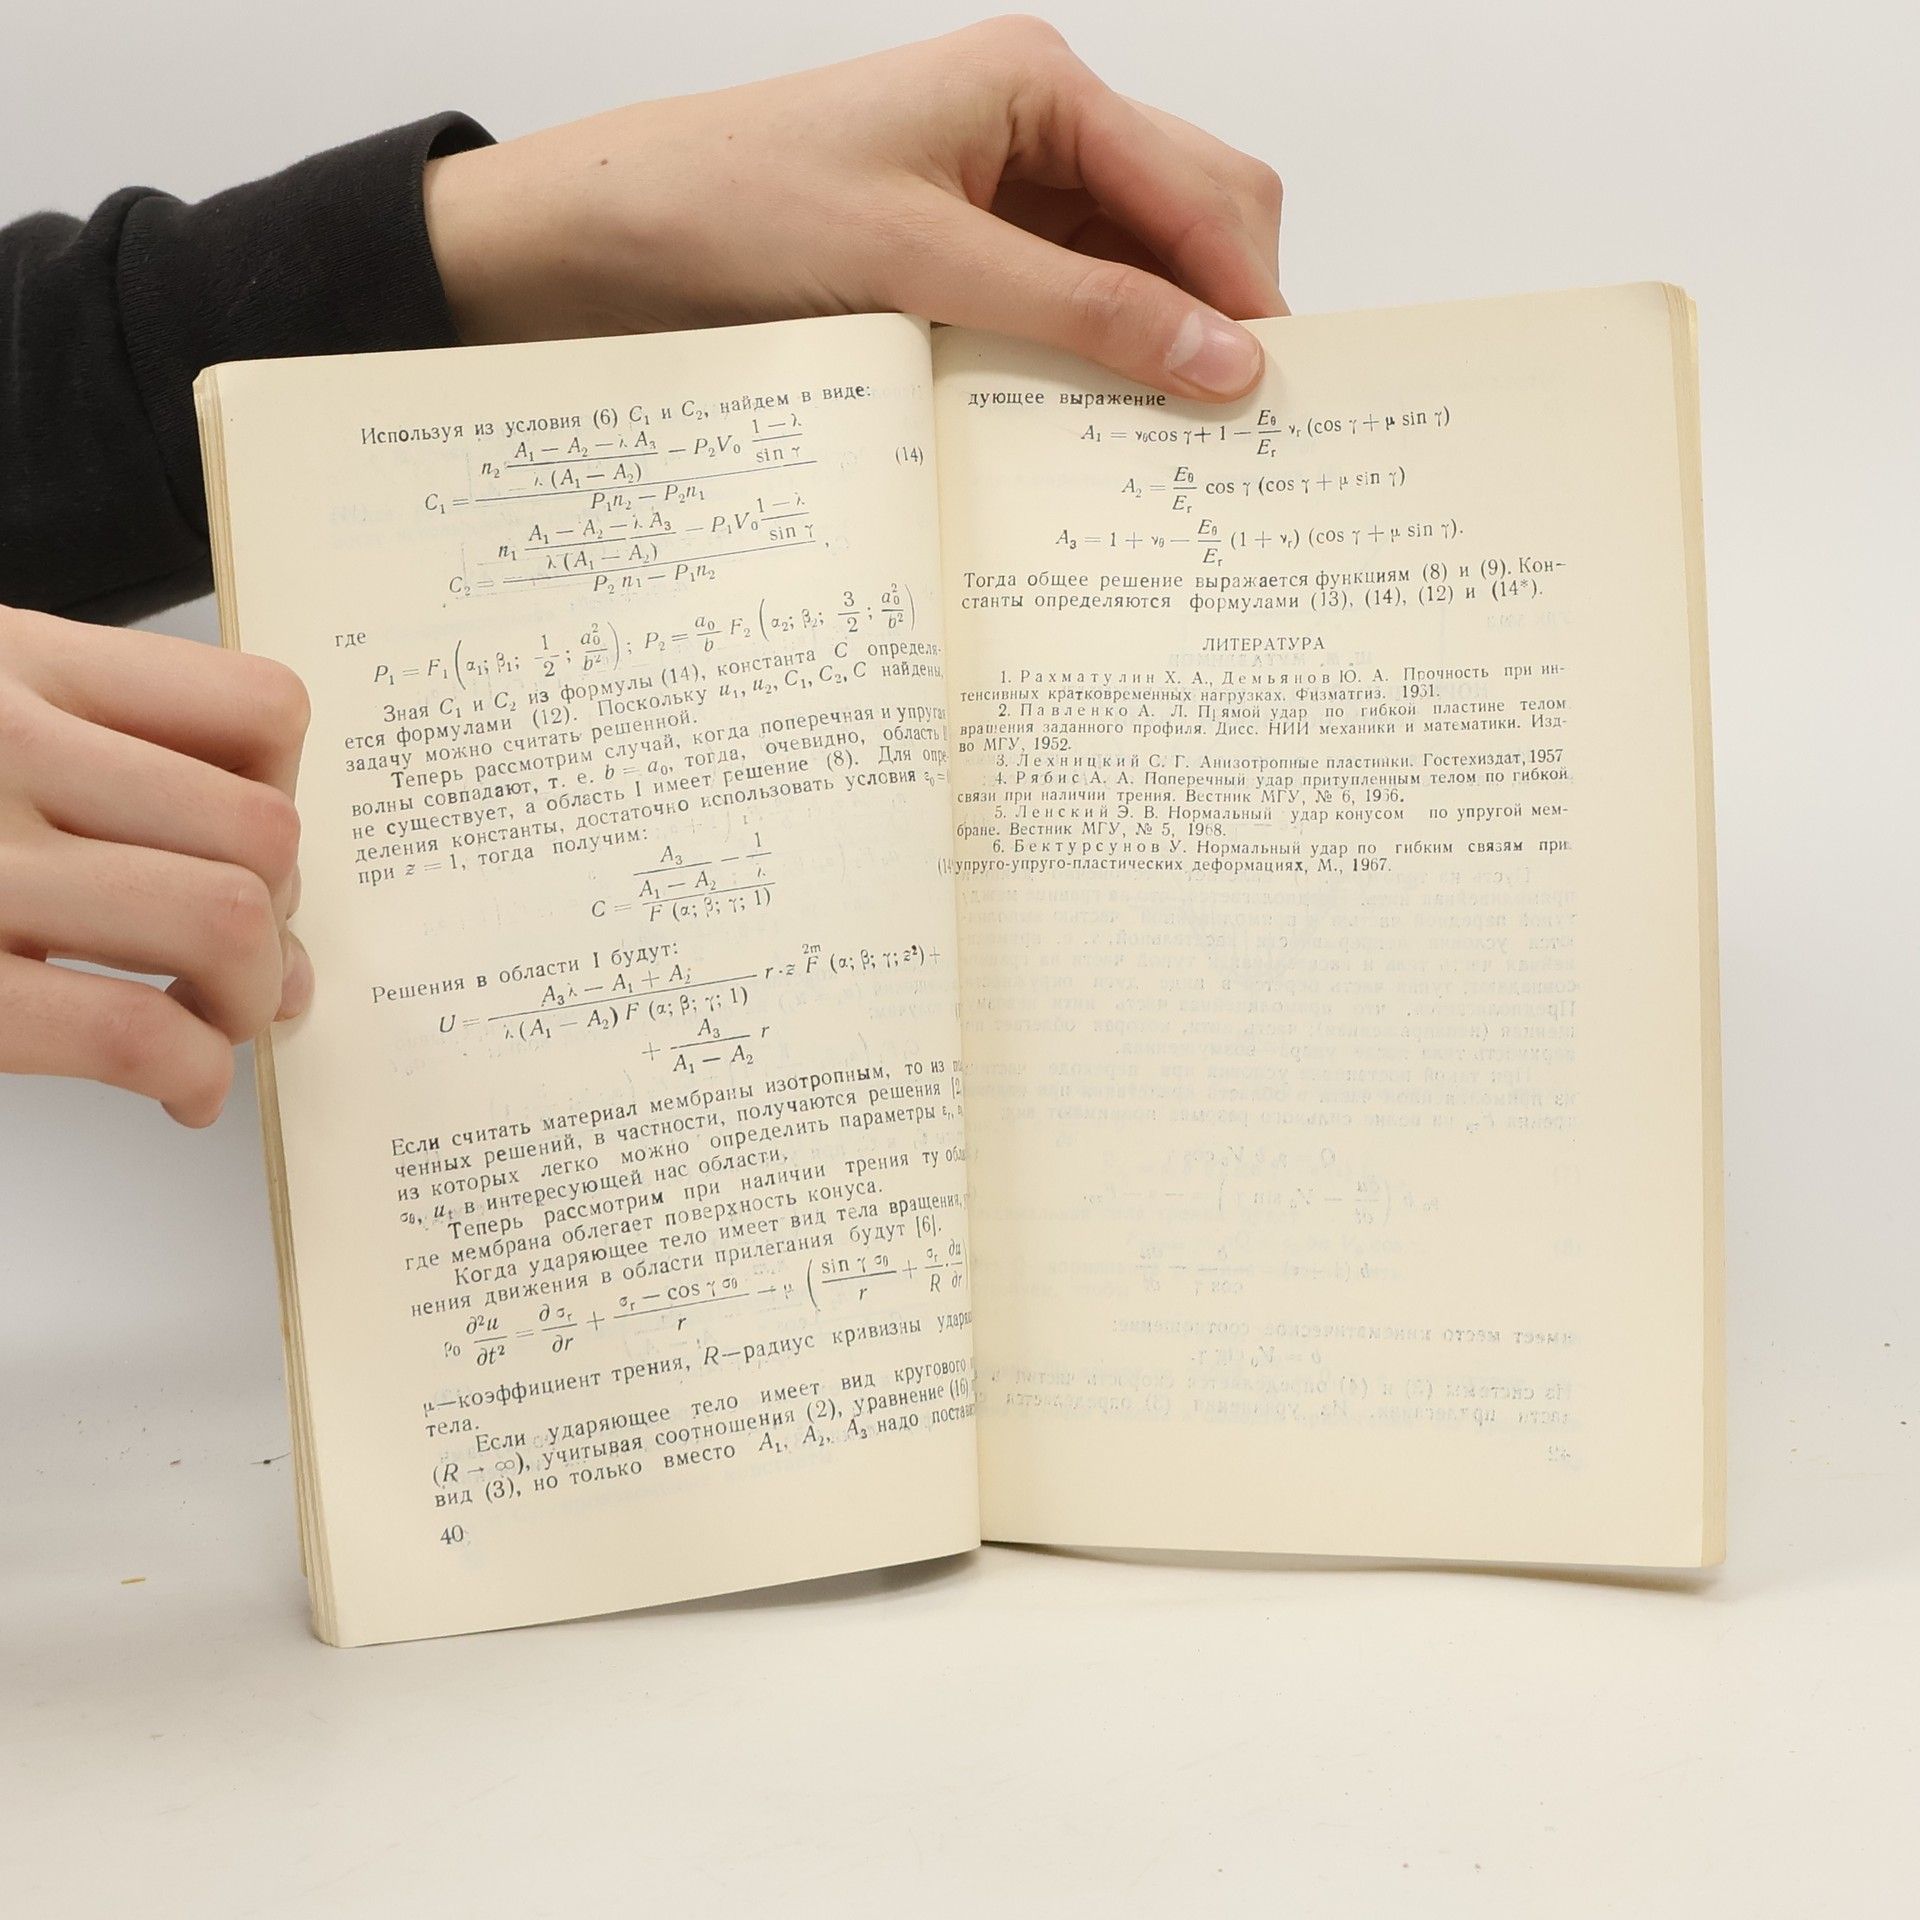 Используя из условия (6) C₁ и C₂, найдем в виде:
C₁ = (n₂ (A₁ — A₂ — λ A₃)/(λ (A₁ — A₂)) — P₂V₀ (1 — λ)/(sin γ))/(P₁n₂ — P₂n₁) (14)
C₂ = (n₁ (A₁ — A₂ — λ A₃)/(λ (A₁ — A₂)) — P₁V₀ (1 — λ)/(sin γ))/(P₂ n₁ — P₁n₂),
где
P₁ = F₁ (α₁; β₁; 1/2; a₀²/b²); P₂ = a₀/b F₂ (α₂; β₂; 3/2; a₀²/b²)
Зная C₁ и C₂ из формулы (14), константа C определя-
ется формулами (12). Поскольку u₁, u₂, C₁, C₂, C найдены,
задачу можно считать решенной.
Теперь рассмотрим случай, когда поперечная и упругая
волны совпадают, т. е. b = a₀, тогда, очевидно, область
не существует, а область I имеет решение (8). Для опре-
деления константы, достаточно использовать условия ε₀ =
при z = 1, тогда получим:
C = (A₃/(A₁ — A₂) — 1/λ)/(F (α; β; γ; 1))
Решения в области I будут:
U = (A₃λ — A₁ + A₂)/(λ (A₁ — A₂) F (α; β; γ; 1)) r·z 2m F (α; β; γ; z²) +
+ A₃/(A₁ — A₂) r
Если считать материал мембраны изотропным, то из
ченных решений, в частности, получаются решения [2
из которых легко можно определить параметры εᵣ,
σθ, uₜ в интересующей нас области.
Теперь рассмотрим при наличии трения ту
где мембрана облегает поверхность конуса.
Когда ударяющее тело имеет вид тела вращения,
нения движения в области прилегания будут [6].
ρ₀ ∂²u/∂t² = ∂σᵣ/∂r + (σᵣ — cos γ σθ)/r + μ (sin γ σθ/r + σᵣ/R · ∂u/∂r
μ—коэффициент трения, R—радиус кривизны
тела.
Если ударяющее тело имеет вид кругового
(R → ∞), учитывая соотношения (2), уравнение (16)
вид (3), но только вместо A₁, A₂, A₃ надо
40
дующее выражение
A₁ = νθcos γ + 1 — Eθ/Eᵣ νᵣ (cos γ + μ sin γ)
A₂ = Eθ/Eᵣ cos γ (cos γ + μ sin γ)
A₃ = 1 + νθ — Eθ/Eᵣ (1 + νᵣ) (cos γ + μ sin γ).
Тогда общее решение выражается функциям (8) и (9). Кон-
станты определяются формулами (13), (14), (12) и (14*).
ЛИТЕРАТУРА
1. Рахматулин Х. А., Демьянов Ю. А. Прочность при ин-
тенсивных кратковременных нагрузках. Физматгиз. 1961.
2. Павленко А. Л. Прямой удар по гибкой пластине телом
вращения заданного профиля. Дисс. НИИ механики и математики. Изд-
во МГУ, 1952.
3. Лехницкий С. Г. Анизотропные пластинки. Гостехиздат, 1957
4. Рябис А. А. Поперечный удар притупленным телом по гибкой
связи при наличии трения. Вестник МГУ, № 6, 1966.
5. Ленский Э. В. Нормальный удар конусом по упругой мем-
бране. Вестник МГУ, № 5, 1968.
6. Бектурсунов У. Нормальный удар по гибким связям при
упруго-упруго-пластических деформациях, М., 1967.